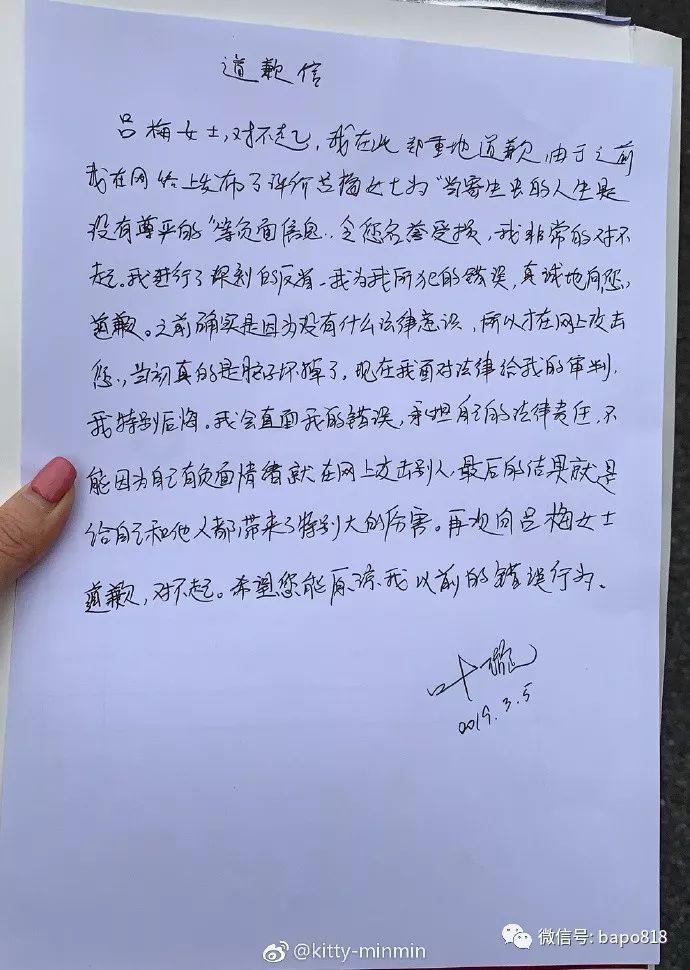 道歉信
吕梅女士,对不起,我在此郑重地道歉,由于之前
我在网络上发布了评价吕梅女士为"当寄生虫的人生是
没有尊严的"等负面信息..令您名誉受损,我非常的对不
起。我进行了深刻的反省、我为我所犯的错误,真诚地向您,
道歉。之前确实是因为没有什么法律意识,所以才在网上攻击
您.,当初真的是脑子坏掉了,现在我面对法律给我的审判,
我特别后悔。我会直面我的错误,承担自己的法律责任,不
能因为自己有负面情绪就在网上攻击别人,最后的结果就是
给自己和他人都带来了特别大的伤害。再次向吕梅女士
道歉,对不起。希望您能原谅我以前的错误行为.
叶璇
2019.3.5
@kitty-minmin
微信号: bapo818